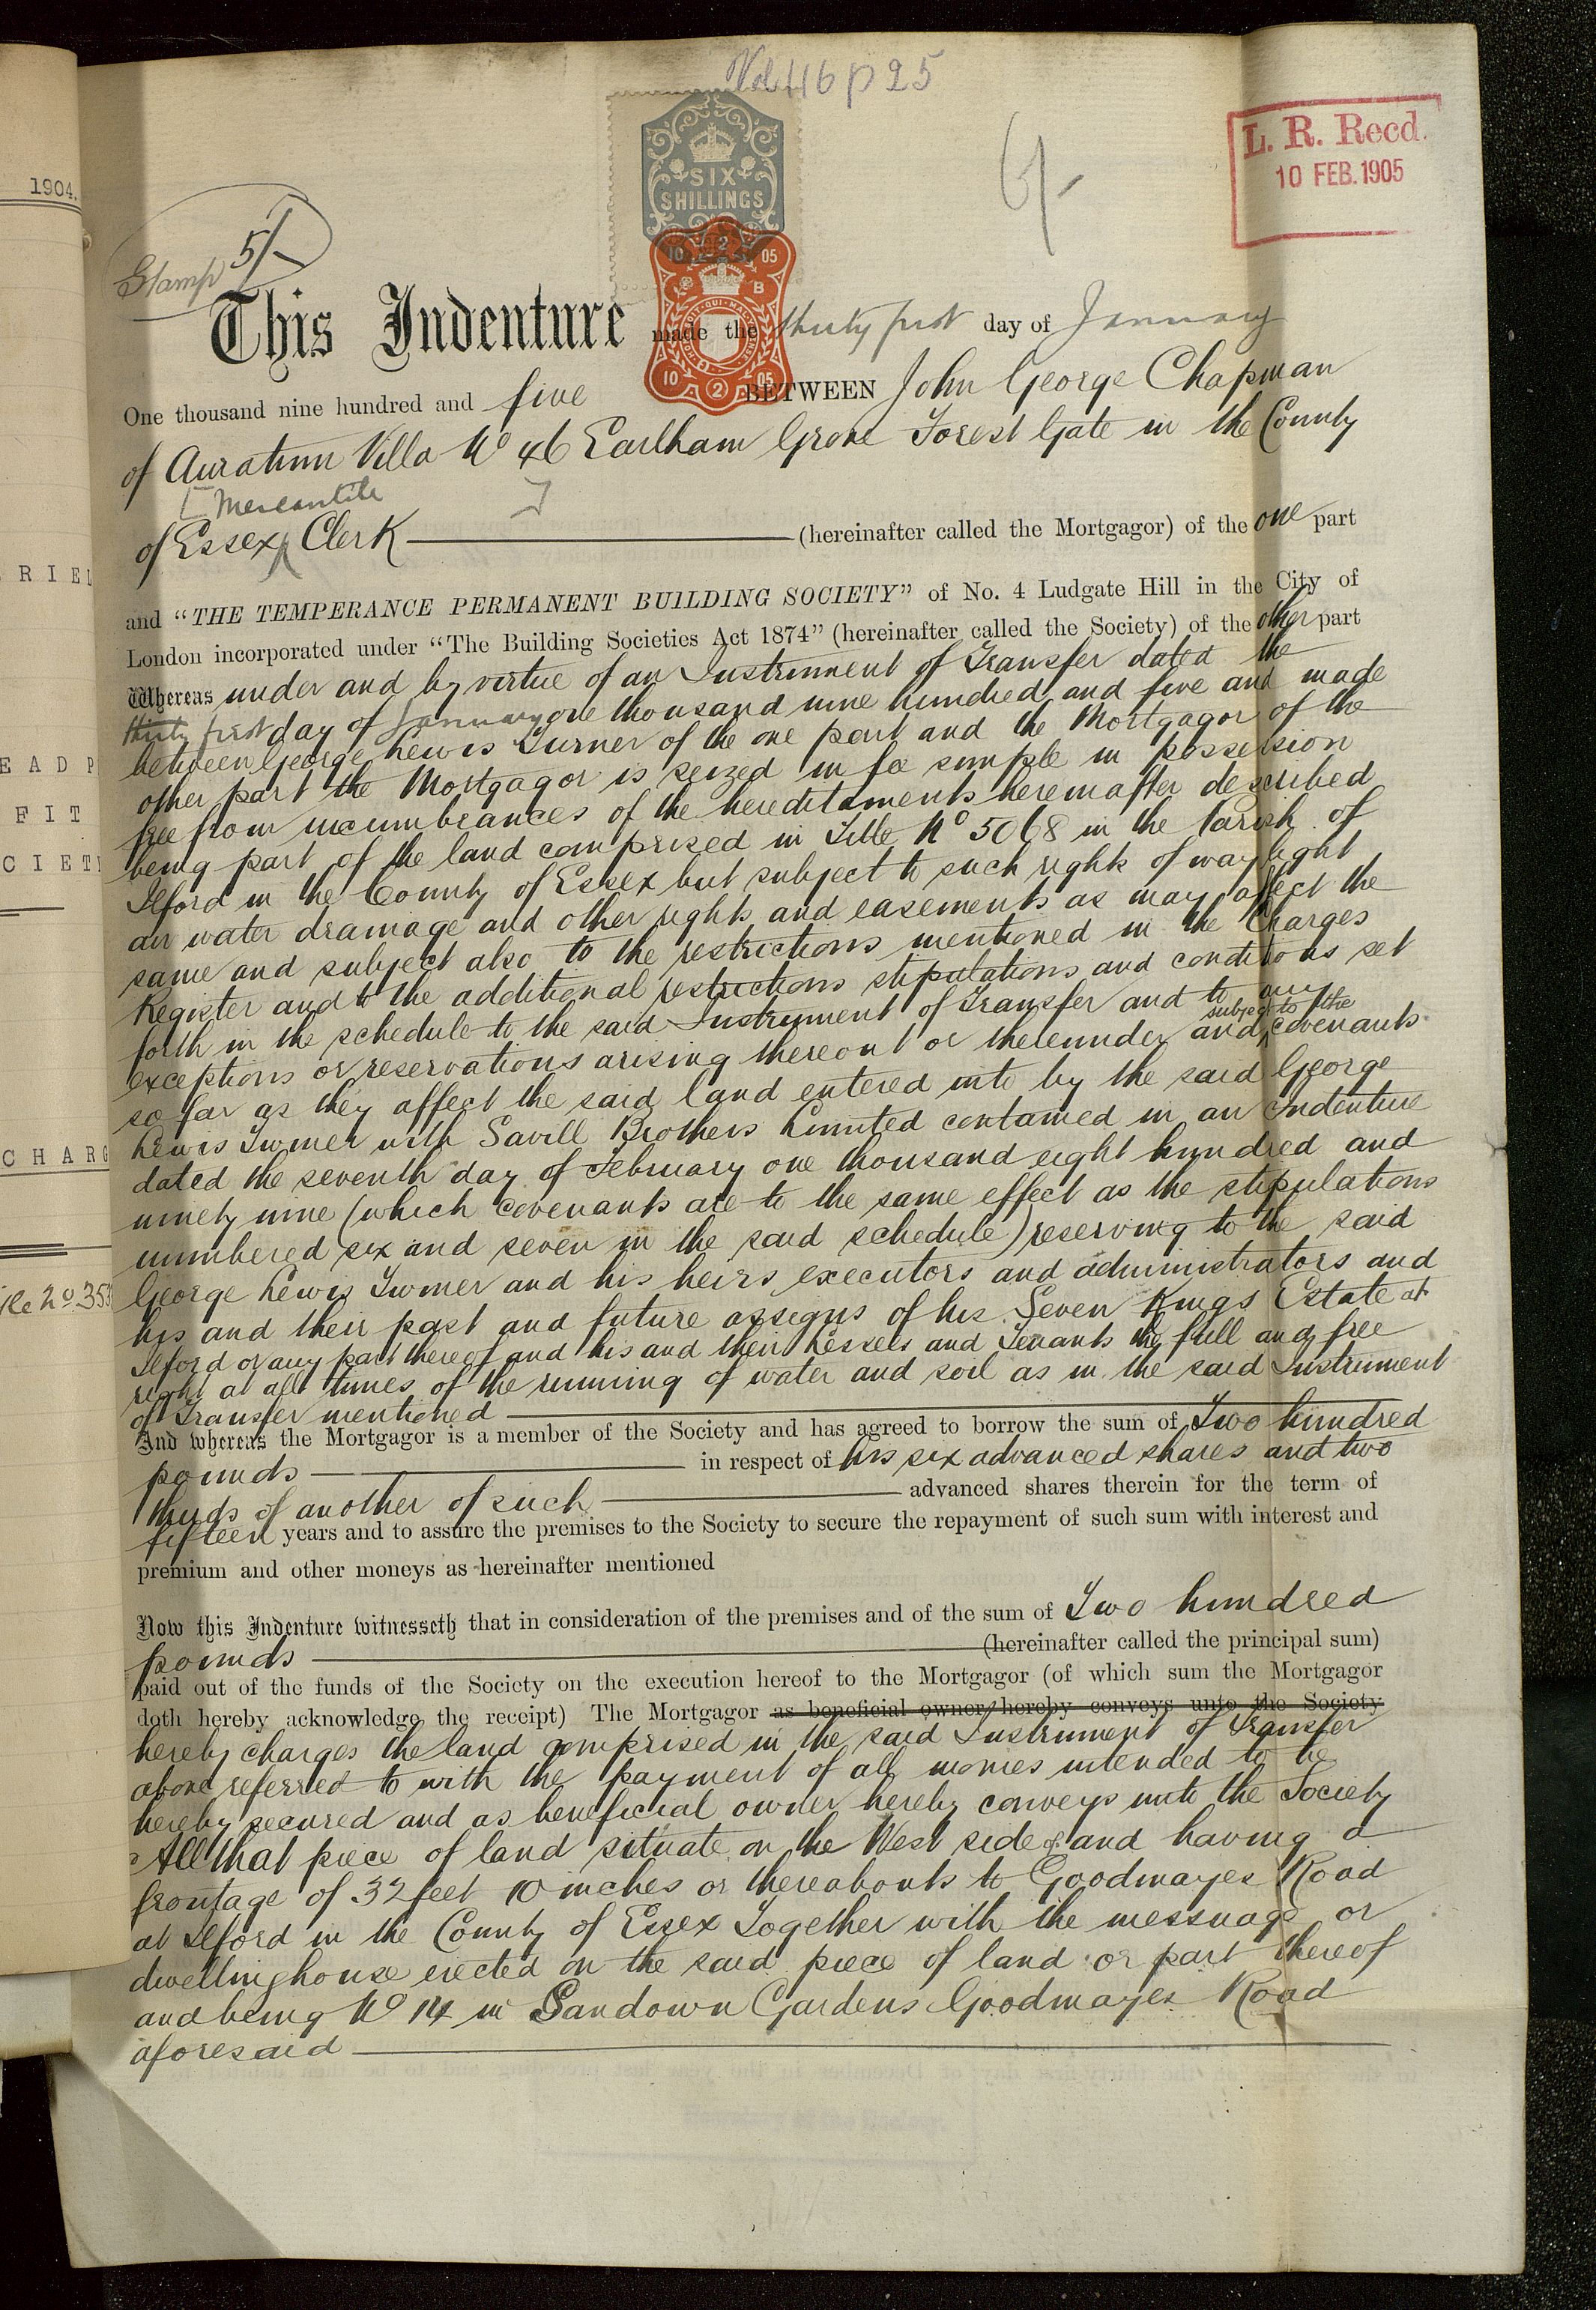 Vol 46 p 25
L. R. Recd.
10 FEB. 1905
6/-
1904.
SIX
SHILLINGS
Stamp 5/-
10 2 05
B
HONI · SOIT · QUI · MAL · Y · PENSE
10 2 05
This Indenture made the thirty first day of January
One thousand nine hundred and five BETWEEN John George Chapman
of Auratum Villa No 46 Earlham Grove Forest Gate in the County
Mercantile
of Essex Clerk (hereinafter called the Mortgagor) of the one part
and “THE TEMPERANCE PERMANENT BUILDING SOCIETY” of No. 4 Ludgate Hill in the City of
London incorporated under “The Building Societies Act 1874” (hereinafter called the Society) of the other part
Whereas under and by virtue of an Instrument of Transfer dated the
thirty first day of January one thousand nine hundred and five and made
between George Lewis Turner of the one part and the Mortgagor of the
other part the Mortgagor is seized in fee simple in possession
free from incumbrances of the hereditaments hereinafter described
being part of the land comprised in Title No 5068 in the Parish of
Ilford in the County of Essex but subject to such rights of way light
air water drainage and other rights and easements as may affect the
same and subject also to the restrictions mentioned in the Charges
Register and to the additional restrictions stipulations and conditions set
forth in the schedule to the said Instrument of Transfer and to any
subject to the
exceptions or reservations arising thereout or thereunder and covenants
so far as they affect the said land entered into by the said George
Lewis Turner with Savill Brothers Limited contained in an Indenture
dated the seventh day of February one thousand eight hundred and
ninety nine (which covenants are to the same effect as the stipulations
numbered six and seven in the said schedule) reserving to the said
George Lewis Turner and his heirs executors and administrators and
his and their past and future assigns of his Seven Kings Estate at
Ilford or any part thereof and his and their Lessees and Tenants the full and free
right at all times of the running of water and soil as in the said Instrument
of Transfer mentioned
And whereas the Mortgagor is a member of the Society and has agreed to borrow the sum of Two hundred
pounds in respect of his six advanced shares and two
thirds of another of such advanced shares therein for the term of
fifteen years and to assure the premises to the Society to secure the repayment of such sum with interest and
premium and other moneys as hereinafter mentioned
Now this Indenture witnesseth that in consideration of the premises and of the sum of Two hundred
pounds (hereinafter called the principal sum)
paid out of the funds of the Society on the execution hereof to the Mortgagor (of which sum the Mortgagor
doth hereby acknowledge the receipt) The Mortgagor as beneficial owner hereby conveys unto the Society
hereby charges the land comprised in the said Instrument of Transfer
above referred to with the payment of all monies intended to be
hereby secured and as beneficial owner hereby conveys unto the Society
All that piece of land situate on the West side of and having a
frontage of 32 feet 10 inches or thereabouts to Goodmayes Road
at Ilford in the County of Essex Together with the messuage or
dwellinghouse erected on the said piece of land or part thereof
and being No 14 in Sandown Gardens Goodmayes Road
aforesaid